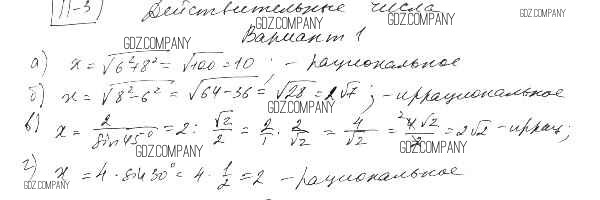 П-3 Действительные числа
GDZ.COMPANY GDZ.COMPANY GDZ.COMPANY
Вариант 1
GDZ.COMPANY
а) x = √6²+8² = √100 = 10; - рациональное
б) x = √8²-6² = √64-36 = √28 = 2√7; - иррациональное
GDZ.COMPANY
в) x = 2/sin45° = 2 : √2/2 = 2/1 · 2/√2 = 4/√2 = ²4√2/2 = 2√2 - иррац;
GDZ.COMPANY GDZ.COMPANY
г) x = 4 · sin30° = 4 · 1/2 = 2 - рациональное
GDZ.COMPANY